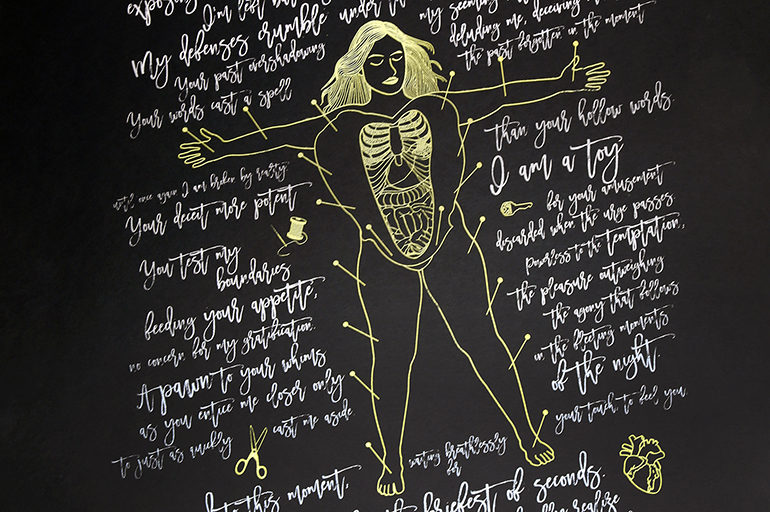 exposing
I'm left but
My defenses rumble
Your past overshadowing
Your words cast a spell
until once again I am broken by reality.
Your deceit more potent
You test my
boundaries
feeding your appetite,
no concern for my gratification.
A pawn to your whims
as you entice me closer only
to just as quickly
cast me aside
to this moment,
under
my seeming
deluding me, deceiving
the past forgotten in the moment
than your hollow words.
I am a toy
for your amusement
discarded when the urge passes.
powerless to the temptation,
the pleasure outweighing
the agony that follows
in the fleeting moments
of the night.
your touch to feel you
waiting breathlessly
for
briefest of seconds.
realize